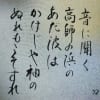 音に聞く
高師の浜の
あだ波は
かけじや袖の
ぬれもこそすれ
72